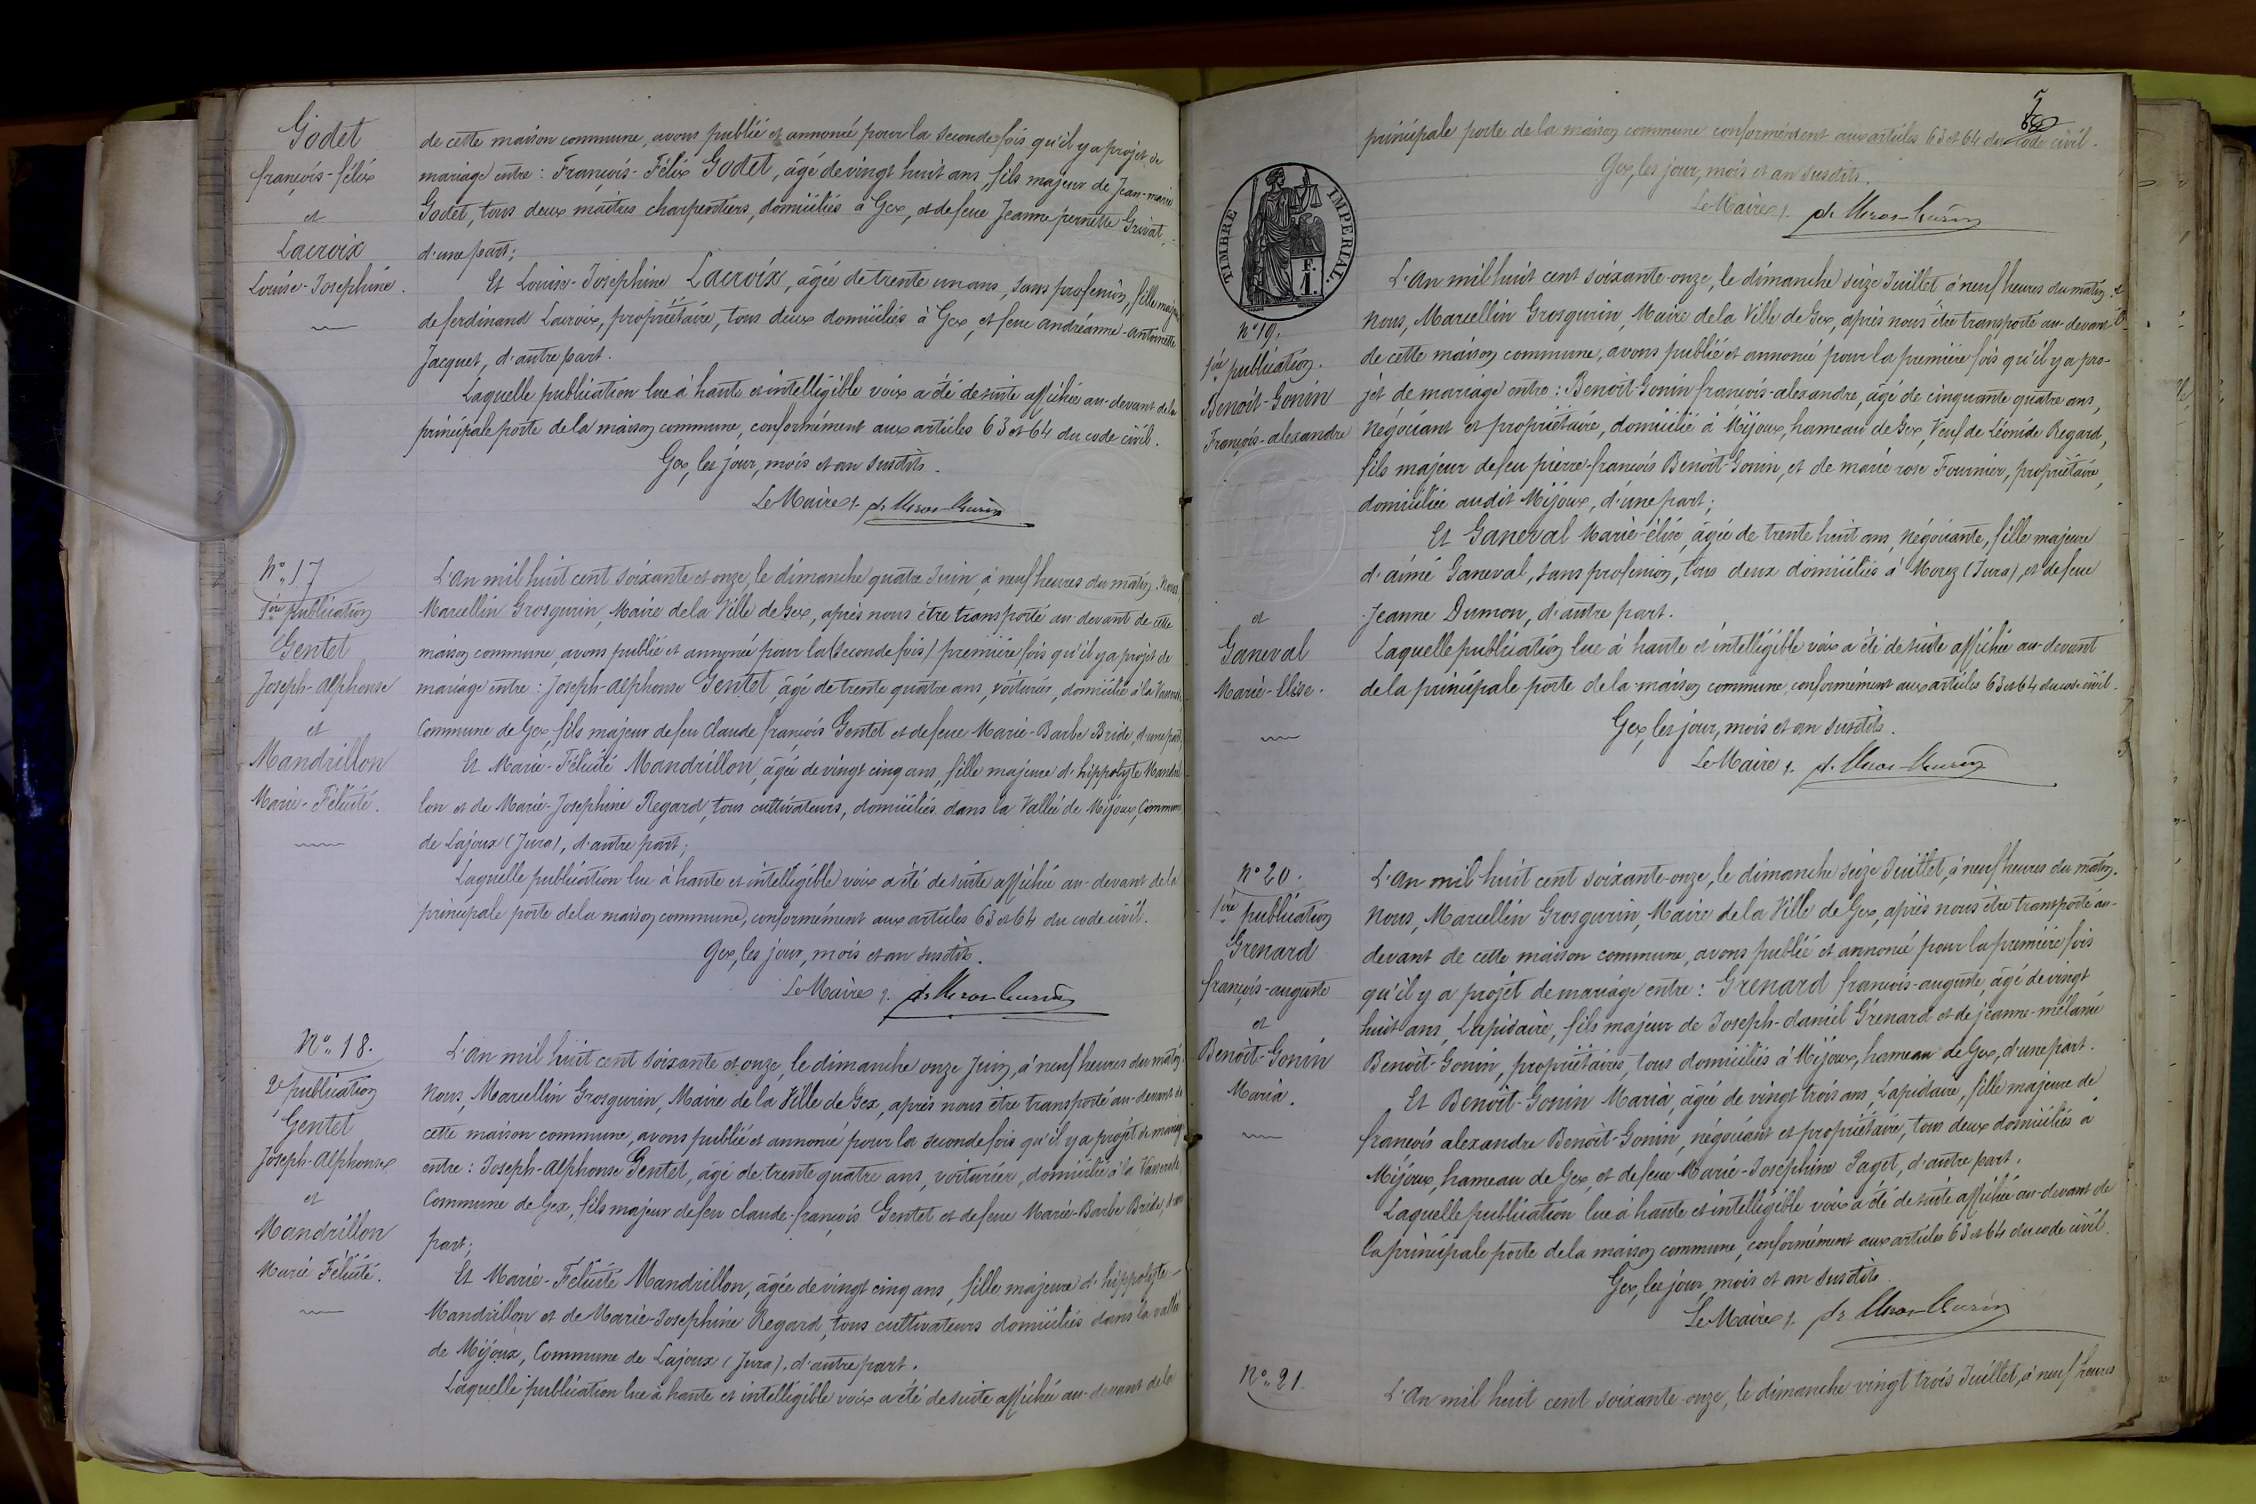 Godet
françois-félix
et
Lacroix
Louise-Josephine.
de cette maison commune, avons publié et annoncé pour la seconde fois qu'il y a projet de
mariage entre : François-Félix Godet, âgé de vingt huit ans, fils majeur de Jean-marie
Godet, tous deux maîtres charpentiers, domiciliés à Gex, et de feue Jeanne pernette Grivat,
d'une part;
Et Louise-Josephine Lacroix, âgée de trente un ans, sans profession, fille majeure
de ferdinand Lacroix, propriétaire, tous deux domiciliés à Gex, et feue andréanne-antoinette
Jacquet, d'autre part.
Laquelle publication lue à haute et intelligible voix a été de suite affichée au-devant de la
principale porte de la maison commune, conformément aux articles 63 et 64 du code civil.
Gex, les jour, mois et an susdits.
Le Maire,
N° 17
1ère publication
Gentet
Joseph-Alphonse
et
Mandrillon
Marie-Félicité.
L'An mil huit cent soixante et onze, le dimanche quatre Juin, à neuf heures du matin. Nous,
Marcellin Grosgurin, Maire de la Ville de Gex, après nous être transporté au-devant de cette
maison commune, avons publié et annoncé pour la (seconde fois) première fois qu'il y a projet de
mariage entre : Joseph-Alphonse Gentet, âgé de trente quatre ans, voiturier, domicilié à la
Commune de Gex, fils majeur de feu Claude françois Gentet et de feue Marie-Barbe Bride, d'une part,
Et Marie-Félicité Mandrillon, âgée de vingt cinq ans, fille majeure d'hippolyte Mandril
lon et de Marie-Josephine Regard, tous cultivateurs, domiciliés dans la Vallée de Mijoux, Commune
de Lajoux (Jura), d'autre part;
Laquelle publication lue à haute et intelligible voix a été de suite affichée au-devant de la
principale porte de la maison commune, conformément aux articles 63 et 64 du code civil.
Gex, les jour, mois et an susdits.
Le Maire,
N° 18.
2e publication
Gentet
Joseph-Alphonse
et
Mandrillon
Marie Félicité.
L'An mil huit cent soixante et onze, le dimanche onze Juin, à neuf heures du matin.
Nous, Marcellin Grosgurin, Maire de la Ville de Gex, après nous être transporté au-devant de
cette maison commune, avons publié et annoncé pour la seconde fois qu'il y a projet de mariage
entre : Joseph-Alphonse Gentet, âgé de trente quatre ans, voiturier, domicilié à la
Commune de Gex, fils majeur de feu claude-françois Gentet et de feue Marie-Barbe Bride, d'une
part;
Et Marie-Félicité Mandrillon, âgée de vingt cinq ans, fille majeure d'hippolyte
Mandrillon et de Marie-Josephine Regard, tous cultivateurs domiciliés dans la vallée
de Mijoux, Commune de Lajoux (Jura), d'autre part.
Laquelle publication lue à haute et intelligible voix a été de suite affichée au-devant de la
5
principale porte de la maison commune conformément aux articles 63 et 64 du code civil.
Gex, les jour, mois et an susdits.
Le Maire,
TIMBRE IMPERIAL.
1 F.
N° 19.
1ère publication.
Benoît-Gonin
François-alexandre
et
Ganeval
Marie-Elise.
L'An mil huit cent soixante-onze, le dimanche seize Juillet à neuf heures du matin
Nous, Marcellin Grosgurin, Maire de la Ville de Gex, après nous être transporté au-devant
de cette maison commune, avons publié et annoncé pour la première fois qu'il y a pro-
jet de mariage entre : Benoît-Gonin françois-alexandre, âgé de cinquante quatre ans,
Négociant et propriétaire, domicilié à Mijoux, hameau de Gex, Veuf de Léonide Regard,
fils majeur de feu pierre-françois Benoît-Gonin, et de marie rose Fournier, propriétaire,
domiciliée audit Mijoux, d'une part;
Et Ganeval Marie-élise, âgée de trente huit ans, négociante, fille majeure
d'aimé Ganeval, sans profession, tous deux domiciliés à Morez (Jura), et de feue
Jeanne Dumon, d'autre part.
Laquelle publication lue à haute et intelligible voix a été de suite affichée au-devant
de la principale porte de la maison commune, conformément aux articles 63 et 64 du code civil.
Gex, les jour, mois et an susdits.
Le Maire,
N° 20.
1ère publication
Grenard
françois-auguste
et
Benoît-Gonin
Maria.
L'An mil huit cent soixante-onze, le dimanche seize Juillet, à neuf heures du matin.
Nous, Marcellin Grosgurin, Maire de la Ville de Gex, après nous être transporté au-
devant de cette maison commune, avons publié et annoncé pour la première fois
qu'il y a projet de mariage entre : Grenard françois-auguste, âgé de vingt
huit ans, Lapidaire, fils majeur de Joseph-daniel Grenard et de jeanne-mélanie
Benoît-Gonin, propriétaires, tous domiciliés à Mijoux, hameau de Gex, d'une part.
Et Benoît-Gonin Maria, âgée de vingt trois ans, Lapidaire, fille majeure de
françois alexandre Benoît-Gonin, négociant et propriétaire, tous deux domiciliés à
Mijoux, hameau de Gex, et de feue Marie-Josephine Paget, d'autre part.
Laquelle publication lue à haute et intelligible voix a été de suite affichée au-devant de
la principale porte de la maison commune, conformément aux articles 63 et 64 du code civil.
Gex, les jour, mois et an susdits.
Le Maire,
N° 21.
L'An mil huit cent soixante-onze, le dimanche vingt trois Juillet, à neuf heures